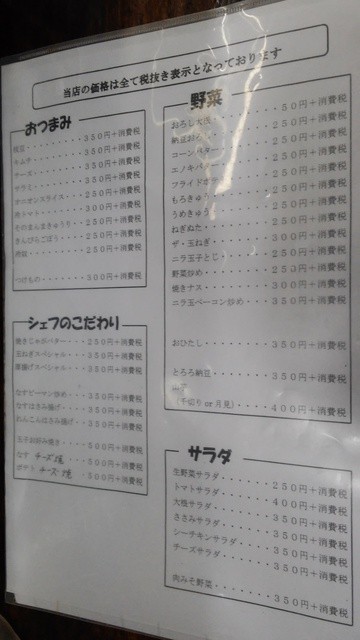 当店の価格は全て税抜き表示となっております
おつまみ
枝豆・・・・・・・・350円+消費税
キムチ・・・・・・・350円+消費税
チーズ・・・・・・・350円+消費税
サラミ・・・・・・・350円+消費税
オニオンスライス・・250円+消費税
冷トマト・・・・・・250円+消費税
そのまんまきゅうり・250円+消費税
きんぴらごぼう・・・250円+消費税
250円+消費税
つけもの・・・・・・300円+消費税
シェフのこだわり
焼きじゃがバター・・・250円+消費税
玉ねぎスペシャル・・・350円+消費税
厚揚げスペシャル・・・350円+消費税
なすピーマン炒め・・・350円+消費税
なすはさみ揚げ・・・・350円+消費税
れんこんはさみ揚げ・・350円+消費税
玉子お好み焼き・・・・500円+消費税
なす チーズ焼・・・500円+消費税
ポテト チーズ焼・・・500円+消費税
野菜
おろし大根・・・・・・50円+消費税
納豆おろし・・・・・250円+消費税
コーンバター・・・・250円+消費税
エノキバター・・・・250円+消費税
フライドポテト・・・250円+消費税
もろきゅう・・・・・250円+消費税
うめきゅう・・・・・250円+消費税
ねぎぬた・・・・・・250円+消費税
ザ・玉ねぎ・・・・・300円+消費税
ニラ玉子とじ・・・・250円+消費税
野菜炒め・・・・・・350円+消費税
焼きナス・・・・・・300円+消費税
ニラ玉ベーコン炒め・・350円+消費税
おひたし・・・・・・350円+消費税
とろろ納豆・・・・・350円+消費税
山芋
(千切り or 月見)・・・・400円+消費税
サラダ
生野菜サラダ・・・・・250円+消費税
トマトサラダ・・・・・400円+消費税
大根サラダ・・・・・・350円+消費税
ささみサラダ・・・・・350円+消費税
シーチキンサラダ・・・350円+消費税
チーズサラダ・・・・・350円+消費税
肉みそ野菜・・・・・・350円+消費税